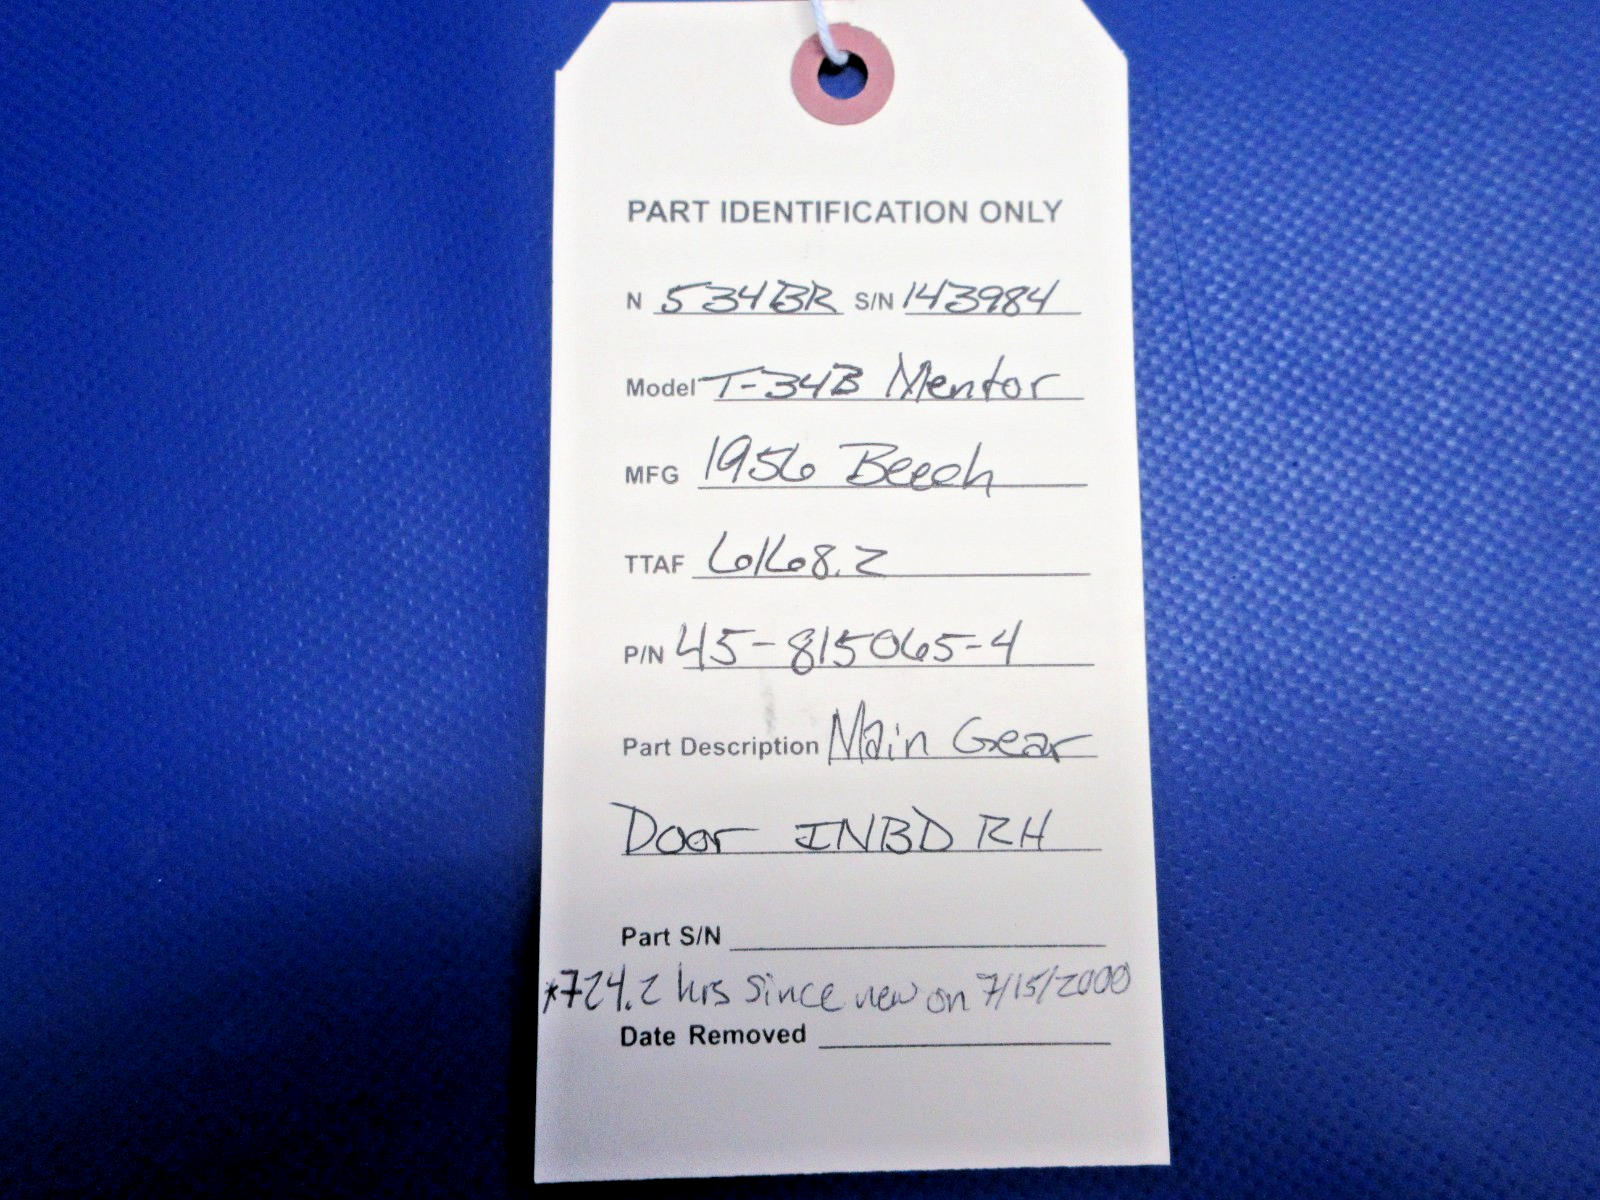 PART IDENTIFICATION ONLY
N 534BR S/N 143984
Model T-34B Mentor
MFG 1956 Beech
TTAF 6168.2
P/N 45-815065-4
Part Description Main Gear
Door INBD RH
Part S/N
*724.2 hrs since new on 7/15/2000
Date Removed